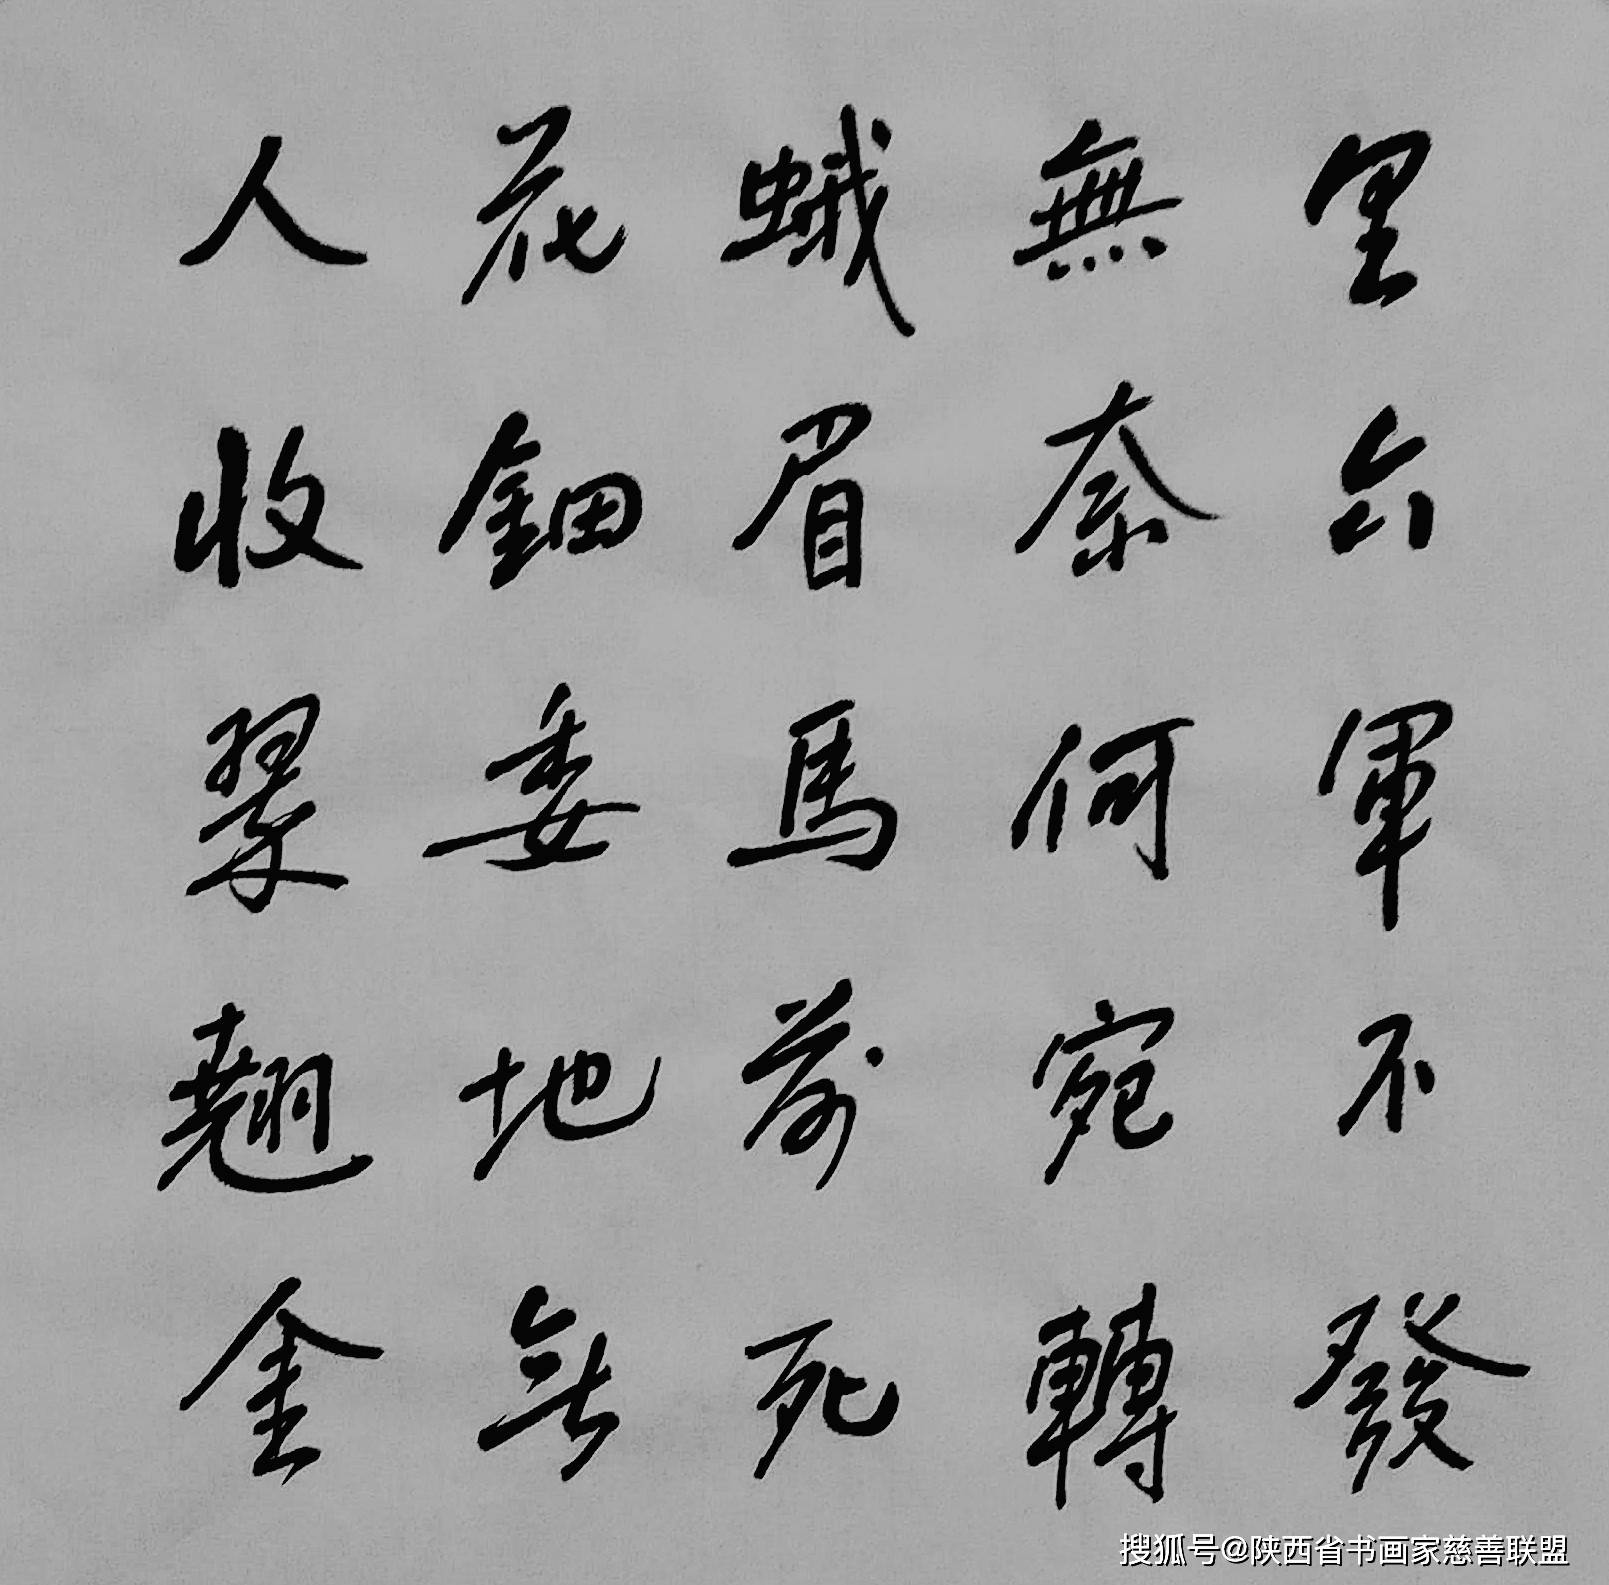 里六軍不發
無奈何宛轉
蛾眉馬前死
花鈿委地無
人收翠翹金
搜狐号@陕西省书画家慈善联盟